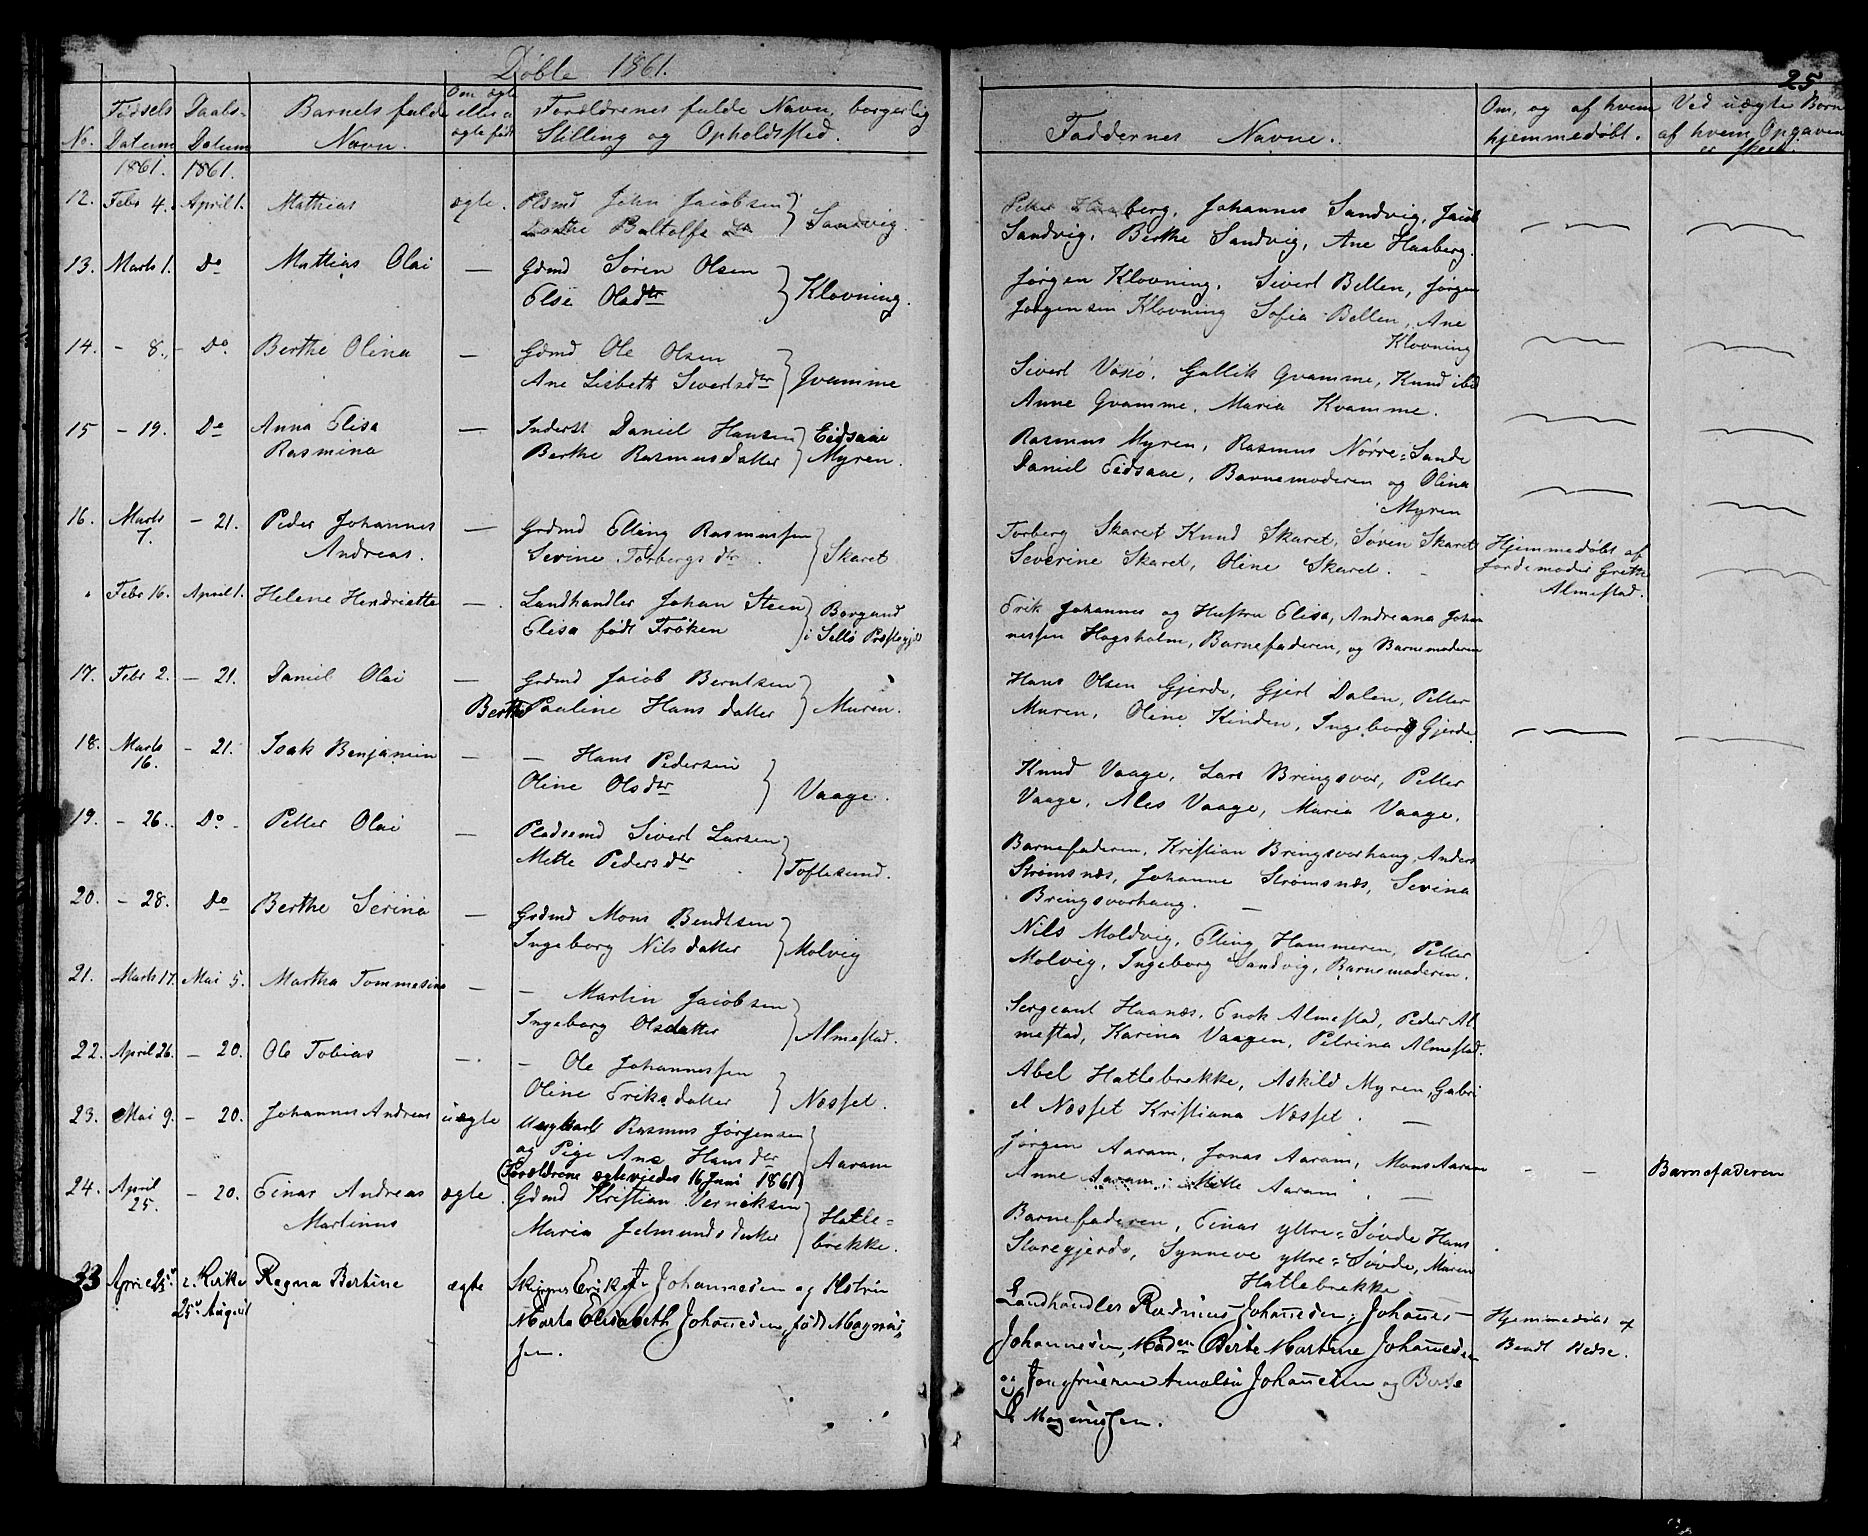 Døbte 1861.
25
No.
Fødsels
Datum
Daabs-
Datum
Barnets fulde
Navn.
Om ægte
eller u
ægte født
Forældrenes fulde Navn, borgerlig
Stilling og Opholdssted.
Faddernes Navne.
Om, og af hvem
hjemmedøbt.
Ved uægte Børn
af hvem Opgaven
er skeet.
1861. 1861.
12. Febr 4. April 1. Mathias ægte. Pldsmd John Jacobsen
Baltolfs Dr } Sandvig.
Peter Haaberg, Johannes Sandvig, Jacob
Sandvig, Berthe Sandvig, Ane Haaberg.
13. Marts 1. Do Mathias Olai — Gdmd Søren Olsen
Else Olsdtr } Klovning.
Jørgen Klovning, Sivert Bellen, Jørgen
Jørgensen Klovning Sofia Bellen, Ane
Klovning
14. - 8. - Do. Berthe Olina — Gdmd Ole Olsen
Ane Lisbeth Sivertsdtr } Qvamme
Sivert Vaagø, Gullik Qvamme, Knud ibd
Anne Qvamme, Maria Kvamme.
15 - 19. Do Anna Elisa
Rasmina — Inderst Daniel Hansen
Berthe Rasmusdatter } Eidsaae
Myren.
Rasmus Myren, Rasmus Nørre-Sande
Daniel Eidsaae, Barnemoderen og Olina
Myren
16. Marts
7. - 21. Peder Johannes
Andreas. — Grdmd Elling Rasmussen
Sevine Torbergsdtr } Skaret
Torberg Skaret Knud Skaret, Søren Skaret
Severine Skaret, Oline Skaret.
Hjemmedøbt af
Jordemoder Grethe
Almestad.
Febr 16. April 1. Helene Hendriette — Landhandler Johan Steen
Elisa født Frøken } Borgund
i Sellø Præstegjeld
Erik Johannes og Hustru Elisa, Andreana Johan
nessen Hagsholm, Barnefaderen, og Barnemoderen
17. Febr 2. - 21. Daniel Olai — Grdmd Jacob Berntsen
Berthe Pauline Hansdatter } Muren.
Hans Olsen Gjerde, Gjert Dalen, Petter
Muren, Oline Kinden, Ingeborg Gjerde.
18. Marts
16. - 21. Isak Benjamin — - Hans Pedersen
Oline Olsdtr } Vaage.
Knud Vaage, Lars Bringsvor, Petter
Vaage, Ales Vaage, Maria Vaage.
19. - 26. Do - Petter Olai — Pladsemd Sivert Larsen
Mette Pedersdtr } Toftesund.
Barnefaderen, Kristian Bringsvorhaug, Anders
Strømsnæs, Johanne Strømsnæs, Serina
Bringsvorhaug.
20. - 28. Do Berthe Serina — Grdmd Mons Bendtsen
Ingeborg Nilsdatter } Molvig
Nils Moldvig, Elling Hammeren, Petter
Molvig, Ingeborg Sandvig, Barnemoderen.
21. Marts 17. Mai 5. Martha Tommasine — - Martin Jacobsen
Ingeborg Olsdatter } Almestad.
Sergeant Haanæs, Enok Almestad, Peder Al
mestad, Karina Vaagen, Petrina Almestad.
22. April 26. - 20. Ole Tobias — - Ole Johannessen
Oline Eriksdatter } Næsset.
Abel Hatlebrekke, Askild Myren, Gabri
el Næsset Kristiana Næsset.
23. Mai 9. - 20. Johannes Andreas uægte Ungkarl Rasmus Jørgensen
og Pige Ane Hansdtr } Aaram
(Forældrene ægteviedes 16 Juni 1861)
Jørgen Aaram, Jonas Aaram, Mons Aaram
Anne Aaram, Mitte Aaram.
- - Barnefaderen
24. April
25. - 20. Einar Andreas
Martinus ægte. Gdmd Kristian Verniksen
Maria Jetmundsdatter } Hatle-
brekke.
Barnefaderen, Einar yttre-Søvde Hans
Storegjerde, Synneve yttre-Søvde, Maren
Hatlebrekke
33 April 25de i Kirke
25de August Regna Bertine ægte Skipper Erikst Johannesen og Hstru
Marta Elisabeth Johannesen, født Magnus-
sen.
Landhandler Rasmus Johannesen, Johannes
Johannesen, Madm Berte Martine Johannesen
og Jomfruerne Amalia Johannesen og Berte
L Magnussen.
Hjemmedøbt af
Bendt Redse.